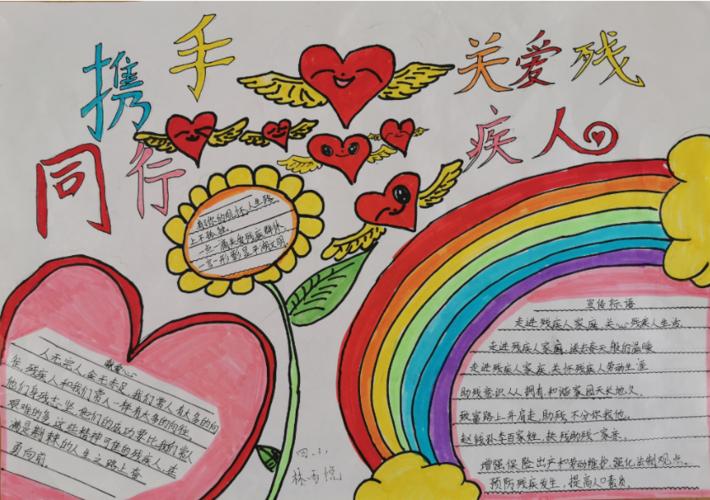 携手同行
关爱残疾人
有你的关怀,人生路
上不孤独。
一点一滴关爱残疾群体,
一言一行彰显平湖文明
献爱心
人无完人,金无足足。我们常人有太多的向
往,残疾人和我们常人一样有太多的向往。
他们身残志坚,他们的成功要比我们常人
艰难的多,这些精神可佳的残疾人,在
满是荆棘的人生之路上奋
勇向前。
四.小
林雨悦
宣传标语
走进残疾人家庭,关心残疾人生活
走进残疾人家庭,送去春天般的温暖
走进残疾人家庭,关怀残疾人劳动生活
助残意识人人拥有,和谐家园天长地久。
致富路上并肩走,助残不分你我他。
赵钱孙李百家姓,扶残助残一家亲。
增强保险出产和劳动维护,强化法制观点,
预防残疾发生,提高人口素质。